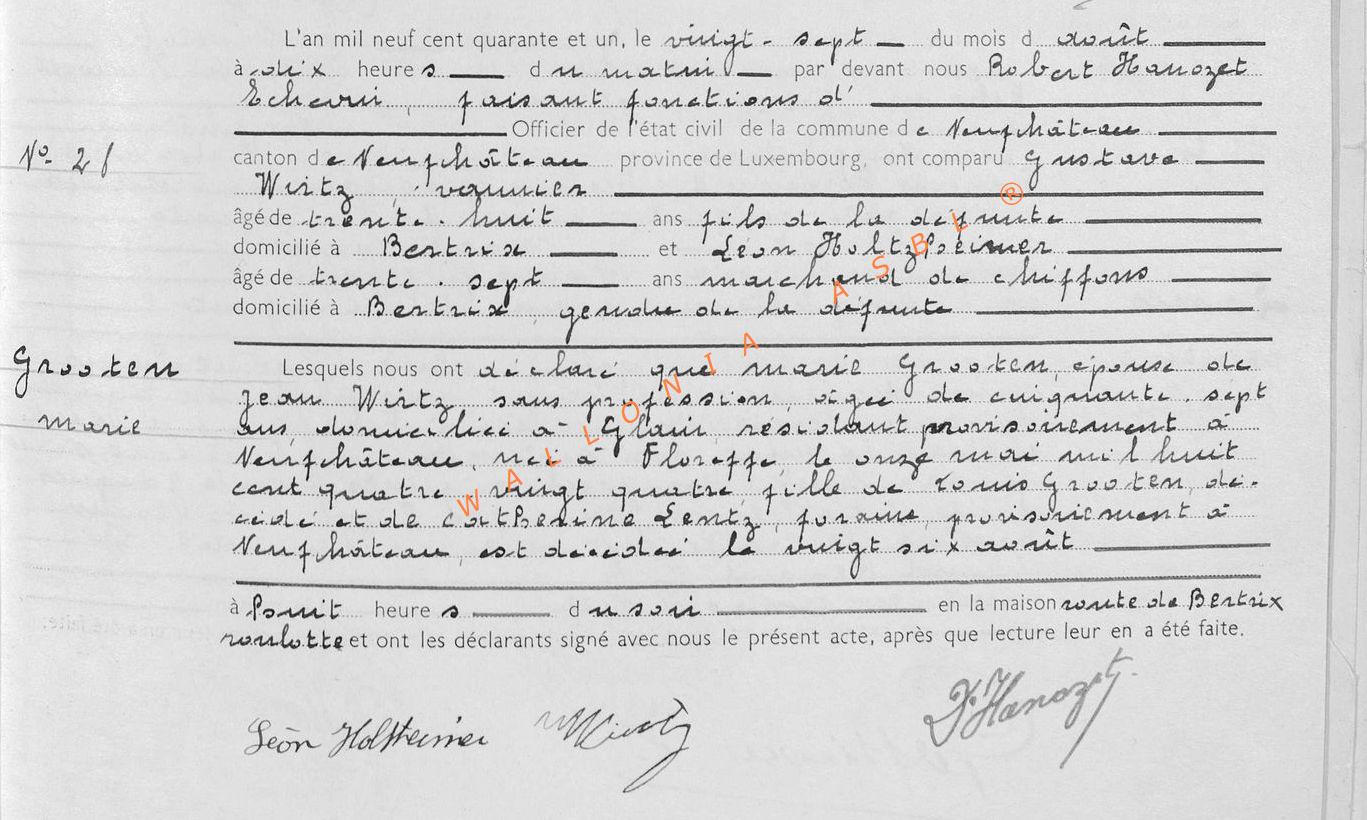 L'an mil neuf cent quarante et un, le vingt-sept du mois d août
à dix heures du matin par devant nous Robert Hanozet
Echevin, faisant fonctions d'
Officier de l'état civil de la commune de Neufchâteau
N°
canton de Neufchâteau province de Luxembourg, ont comparu Gustave
Wirtz, vannier
âgé de trente-huit ans fils de la défunte
domicilié à Bertrix et Léon Holtzheimer
âgé de trente-sept ans marchand de chiffons
domicilié à Bertrix, gendre de la défunte
Grooten
Marie
Lesquels nous ont déclaré que Marie Grooten, épouse de
Jean Wirtz sans profession, âgée de cinquante-sept
ans, domiciliée à Glain, résidant provisoirement à
Neufchâteau, née à Floreffe, le onze mai mil huit
cent quatre-vingt quatre, fille de Louis Grooten, dé-
cédé et de Catherine Lentz, foraine, provisoirement à
Neufchâteau, est décédée le vingt six août
à huit heures du soir en la maison route de Bertrix
roulotte et ont les déclarants signé avec nous le présent acte, après que lecture leur en a été faite.
Léon Holtheimer
Hanozet
WALLONIA ASBL ®